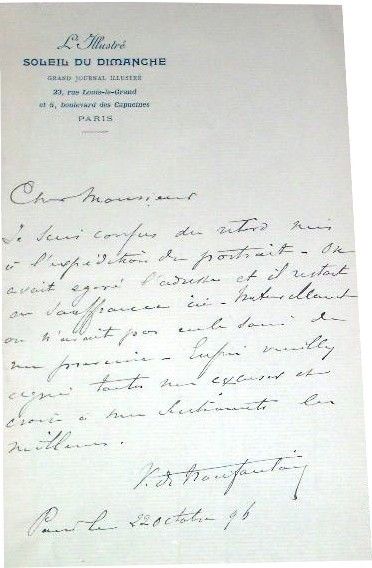 L'Illustré
SOLEIL DU DIMANCHE
GRAND JOURNAL ILLUSTRÉ
23, rue Louis-le-Grand
et 5, boulevard des Capucines
PARIS
Cher Monsieur
Je suis confus du retard mis
à l'expédition du portrait - On
avait égaré l'adresse et il restait
en souffrance ici - Naturellement
on n'avait pas eu le soin de
me prévenir - Enfin veuillez
agréer toutes mes excuses et
croire à mes sentiments les
meilleurs.
V. de
Paris le 22 octobre 96